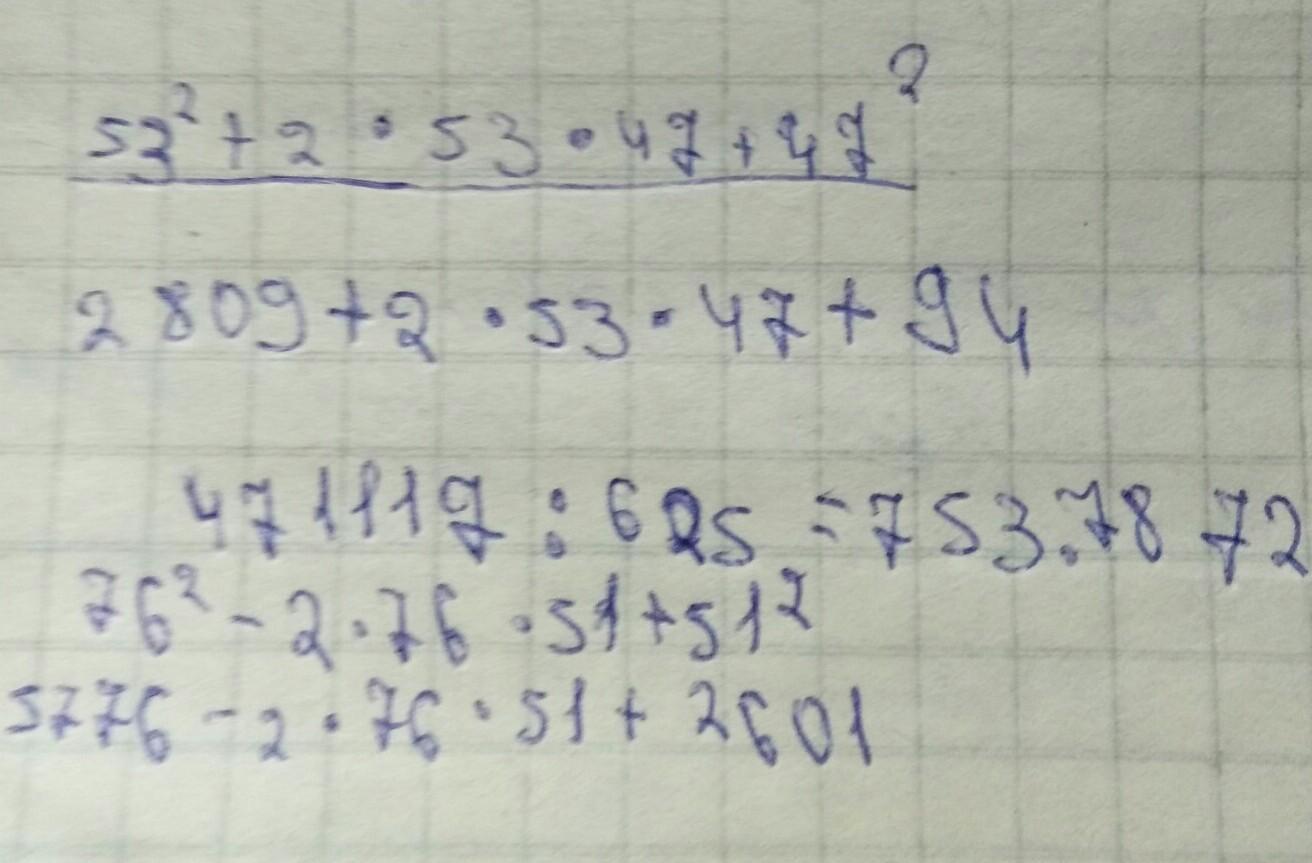 53² + 2 · 53 · 47 + 47²
2809 + 2 · 53 · 47 + 94
471117 : 625 = 753.7872
76² - 2 · 76 · 51 + 51²
5776 - 2 · 76 · 51 + 2601